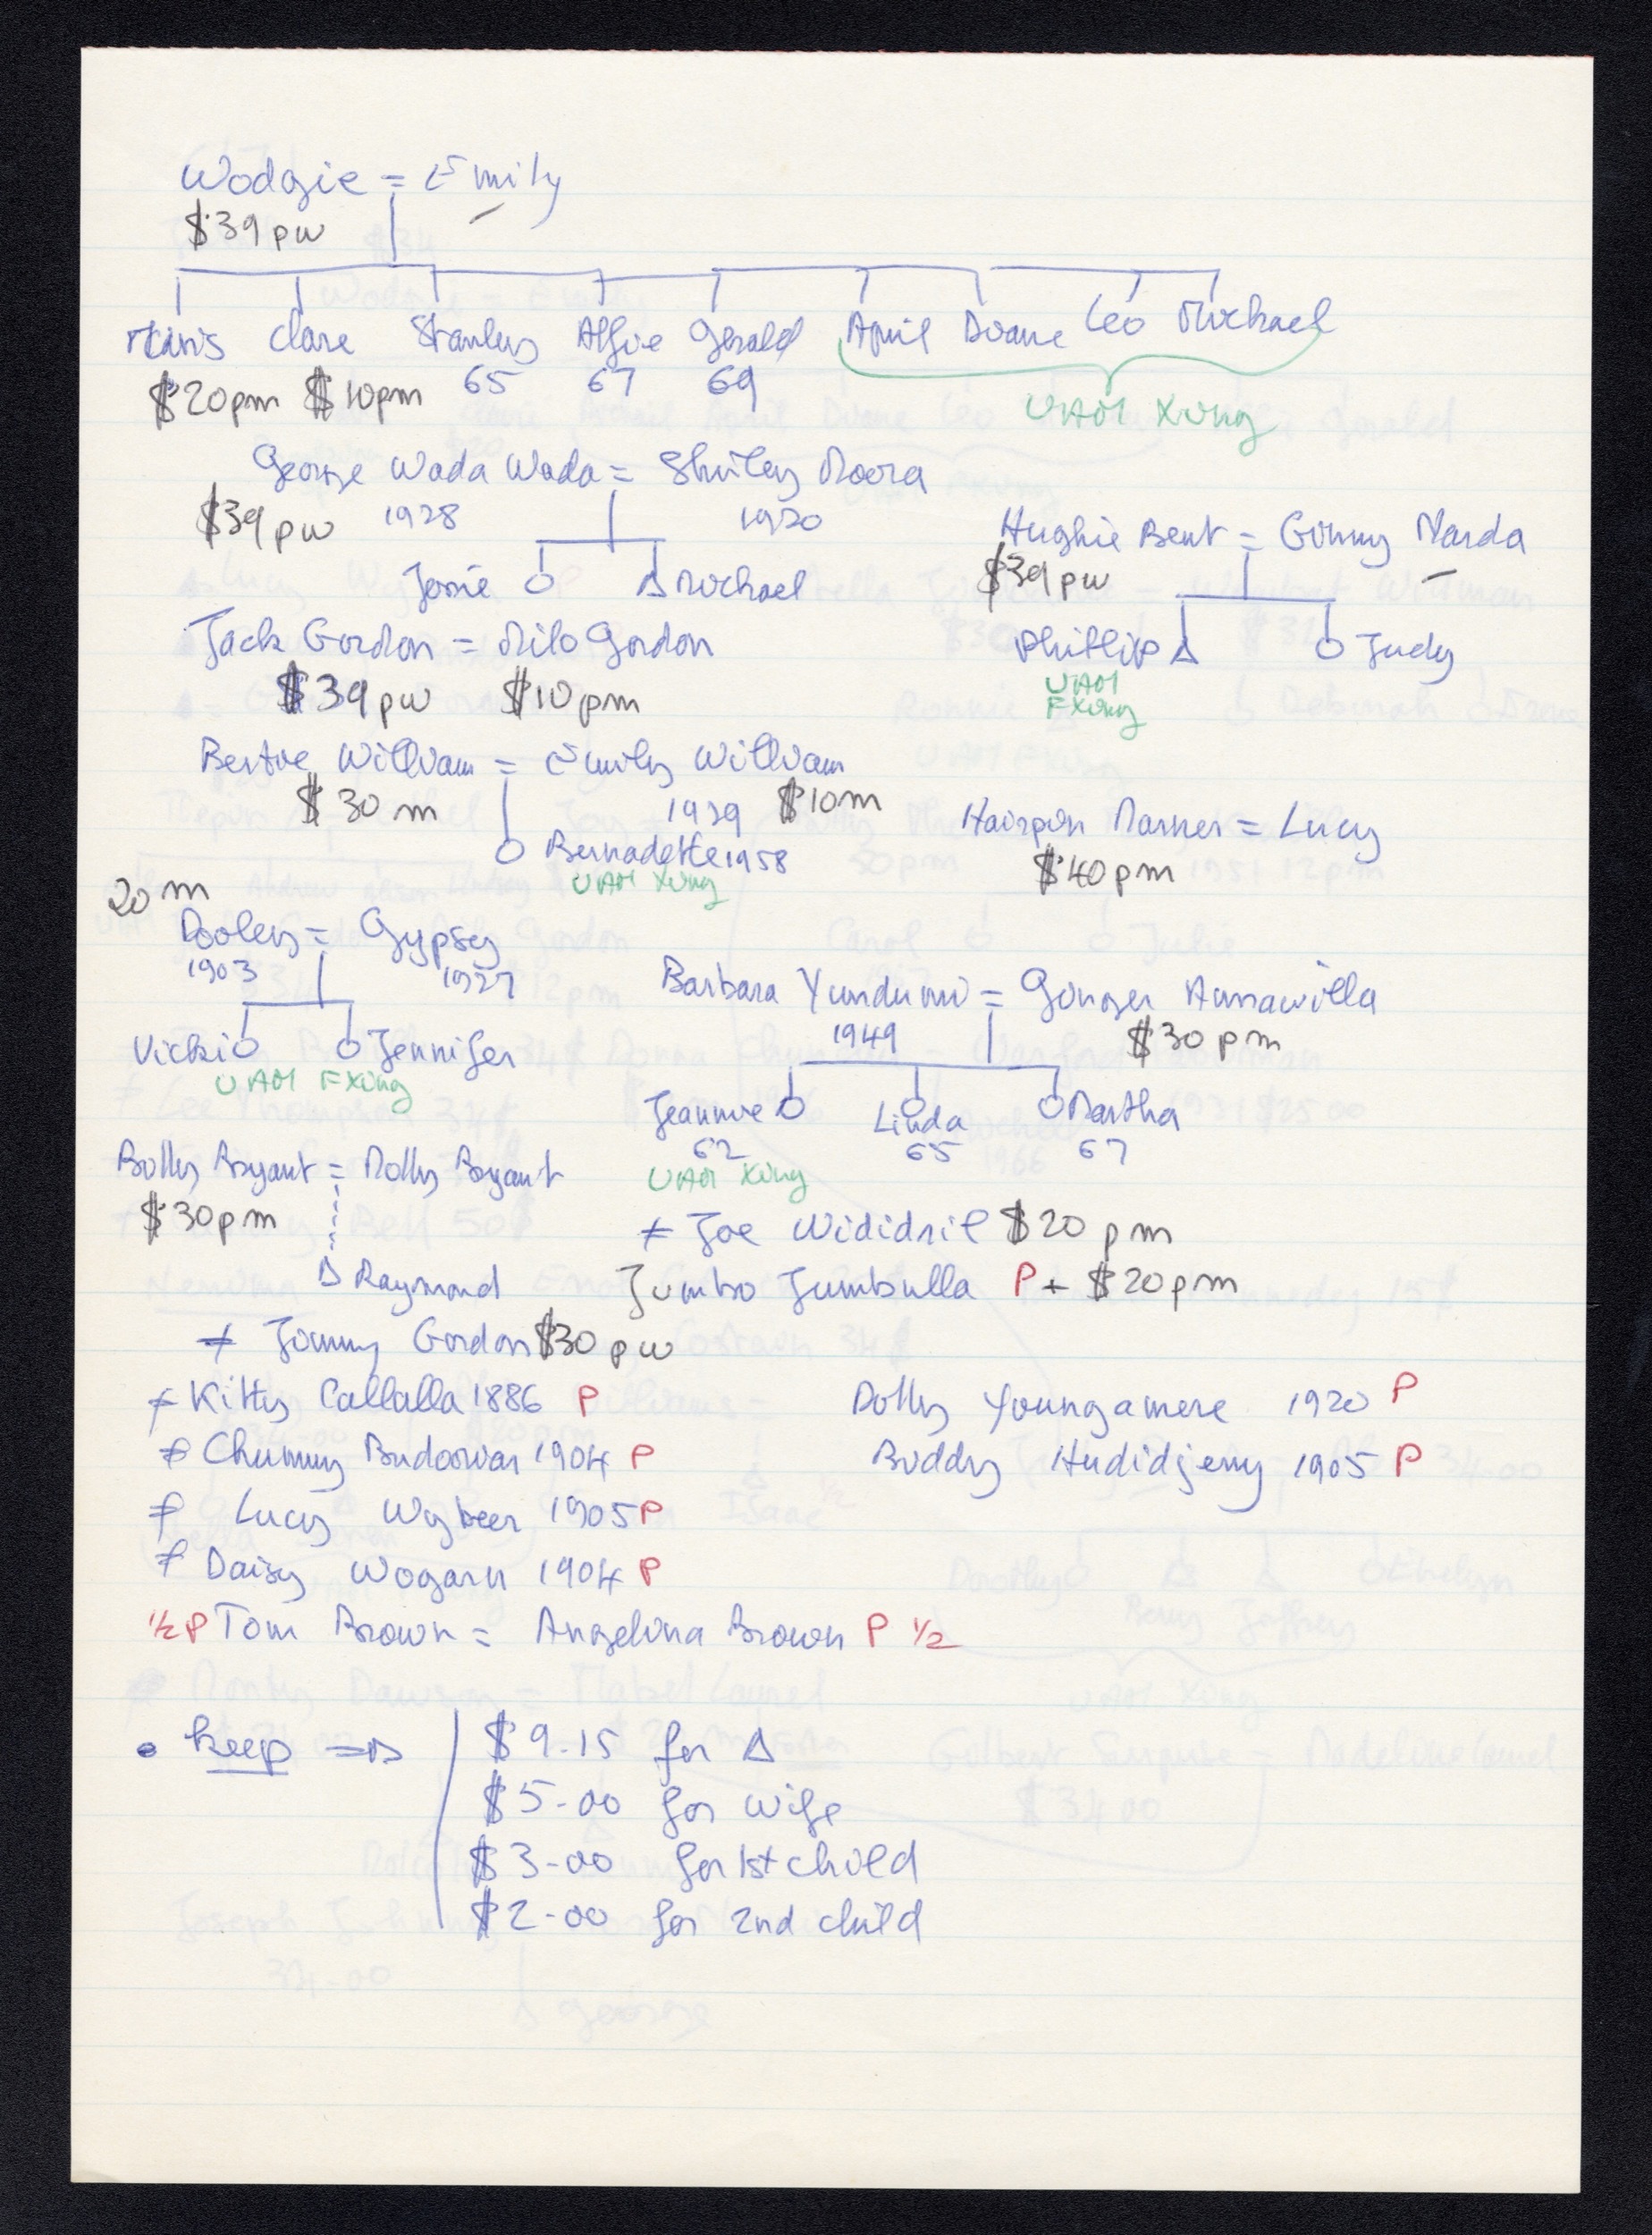 Wodgie = Emily
$39 pw
Mavis Clare Stanley Alfie Gerald April Duane Leo Michael
$20pm $10pm 65 67 69
UAM Xing
George Wada Wada = Shirley Moora
$39 pw 1928 1920
Josie Michael
Hughie Bent = Ginny Marda
$39 pw
Phillip Judy
UAM
FXing
Jack Gordon = Milo Gordon
$39 pw $10 pm
Bertie William = Emily William
$30 m 1929 $10m
Bernadette 1958
UAM Xing
Hairpin Warner = Lucy
$40 pm
20 m
Dooley = Gypsy
1903 1927
Vicki Jennifer
UAM FXing
Barbara Yundumi = Ginger Annawilla
1949 $30 pm
Jeannie Linda Martha
62 65 67
UAM Xing
Billy Bryant = Molly Bryant
$30 pm
Raymond
≠ Joe Wididril $20 pm
Jumbo Jumbulla P + $20pm
≠ Tommy Gordon $30 pw
≠ Kitty Callalla 1886 P
≠ Chummy Budoowan 1904 P
≠ Lucy Wybeer 1905 P
≠ Daisy Wogarn 1904 P
Dolly Youngamere 1920 P
Buddy Hudidjerry 1905 P
½ P Tom Brown = Angelina Brown P ½
• keep ⇒ $9-15 for Δ
$5-00 for wife
$3-00 for 1st child
$2-00 for 2nd child